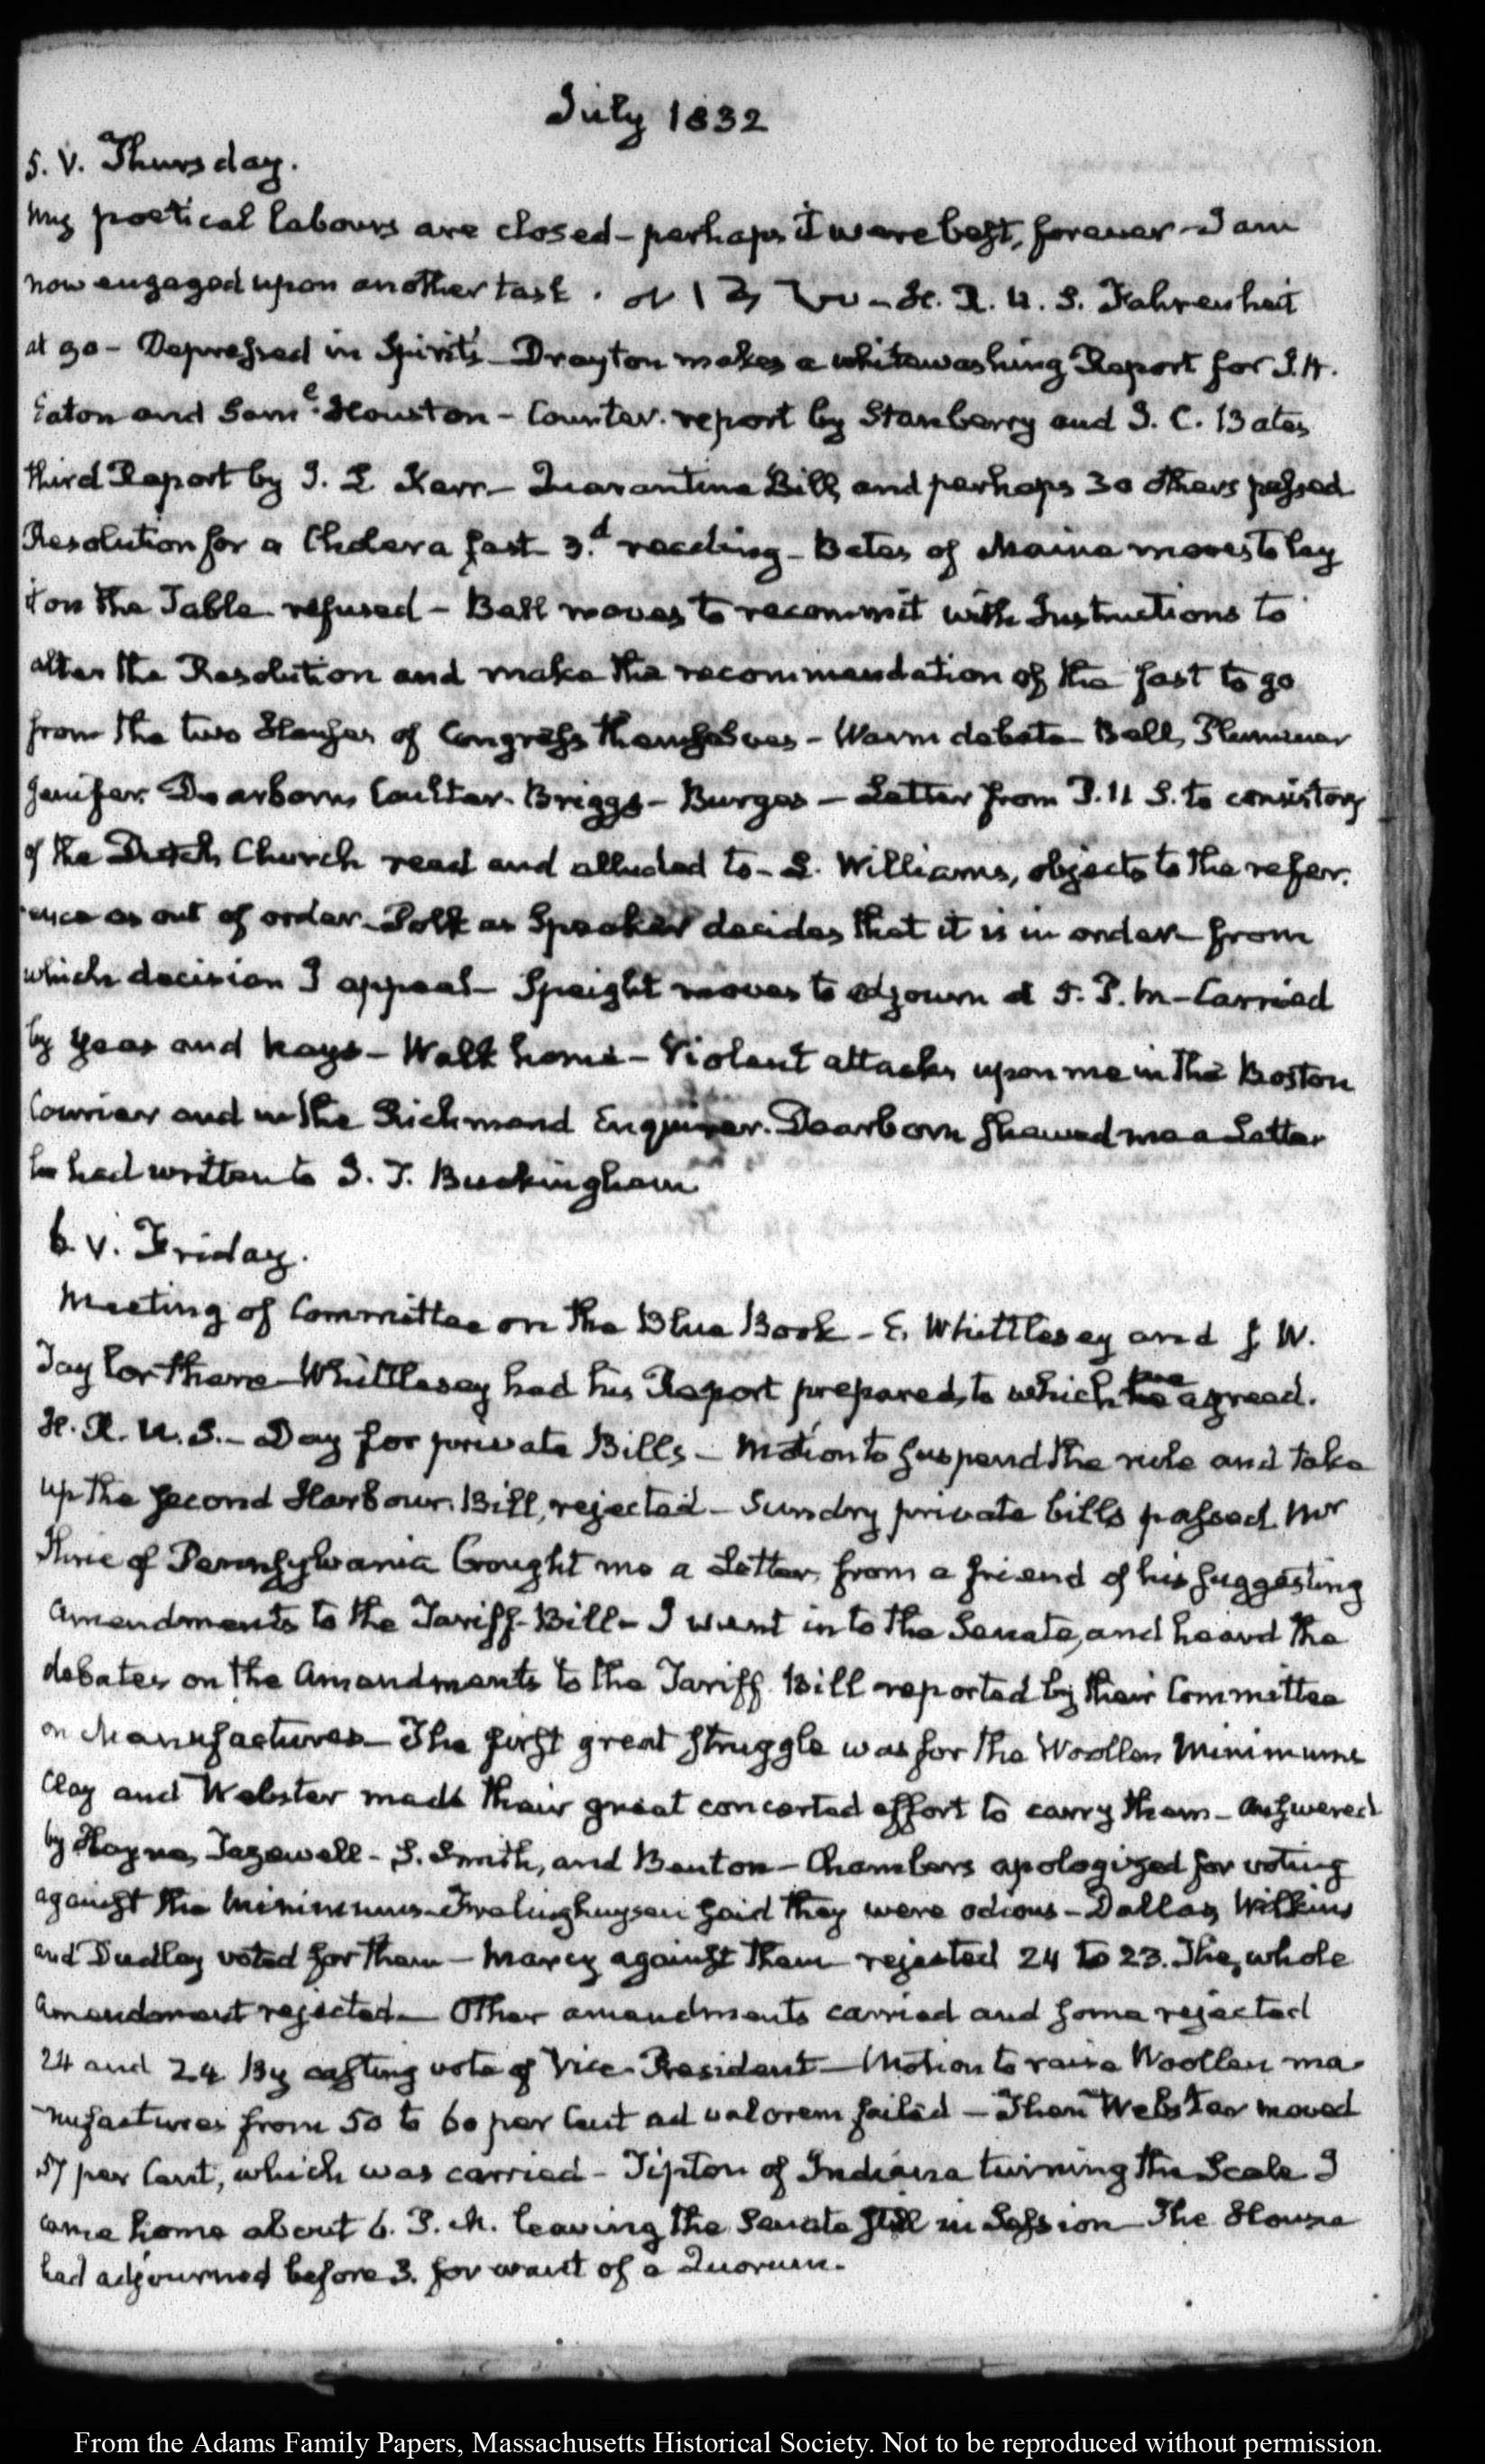 July 1832
5. V. Thursday.
My poetical labours are closed - perhaps it were best, forever - I am
now engaged upon another task. H. R. U. S. Fahrenheit
at 90 - Depressed in Spirits - Drayton makes a whitewashing Report for J. H.
Eaton and Saml. Houston - Counter-report by Stanberry and I. C. Bates
third Report by J. L Kerr - Quarantine Bill, and perhaps 30 others passed
Resolution for a Cholera fast 3.d reading - Bates of Maine moves to lay
it on the Table refused - Bell moves to recommit with Instructions to
alter the Resolution and make the recommendation of the fast to go
from the two Houses of Congress themselves - Warm debate - Bell, Plummer
Jenifer. Dearborn, Coulter. Briggs - Burges - Letter from P. U S. to consistory
of the Dutch Church read and alluded to - L. Williams, objects to the refer-
-ence as out of order - Polk as Speaker decides that it is in order - from
which decision I appeal - Speight moves to adjourn at 5. P. M - Carried
by Yeas and Nays - Walk home - Violent attacks upon me in the Boston
Courier and in the Richmond Enquirer. Dearborn shewed me a Letter
he had written to J. T. Buckingham
6. V. Friday.
Meeting of Committee on the Blue Book - E. Whittlesey and J W.
Taylor there - Whittlesey had his Report prepared, to which we agreed.
H. R. U. S. - Day for private Bills - Motion to suspend the rule and take
up the second Harbour Bill, rejected - Sundry private bills passed Mr
of Pennsylvania brought me a Letter, from a friend of his suggesting
Amendments to the Tariff-Bill - I went in to the Senate, and heard the
debates on the Amendments to the Tariff Bill reported by their Committee
on Manufactures - The first great struggle was for the Woollen Minimums
Clay and Webster made their great concerted effort to carry them - answered
by Hayne, Tazewell - S. Smith, and Benton - Chambers apologized for voting
against the Minimums - Frelinghuysen said they were odious - Dallas, Wilkins
and Dudley voted for them - Marcy against them rejected 24 to 23. The whole
Amendment rejected - Other amendments carried and some rejected
24 and 24 By casting vote of Vice-President - Motion to raise Woollen ma-
-nufactures from 50 to 60 per Cent ad valorem failed - Then Webster moved
57 per Cent, which was carried - Tipton of Indiana turning the Scale I
came home about 6. P. M. leaving the Senate still in Session - The House
had adjourned before 3. for want of a Quorum.
From the Adams Family Papers, Massachusetts Historical Society. Not to be reproduced without permission.